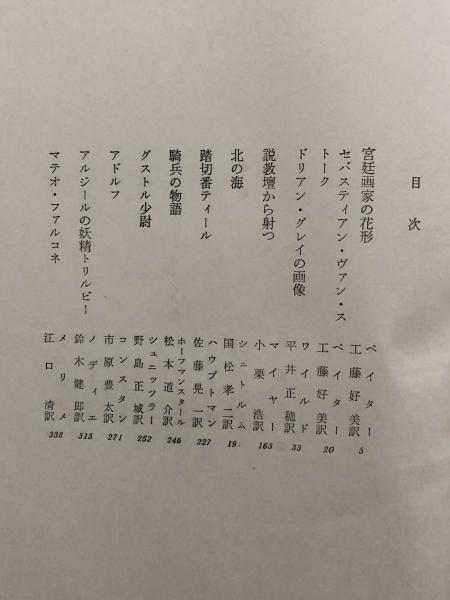 目次
宮廷画家の花形
ペイター
工藤好美訳
5
セバスティアン・ヴァン・ス
トーク
ペイター
工藤好美訳
20
ドリアン・グレイの画像
ワイルド
平井正穂訳
33
説教壇から射つ
マイヤー
小栗浩訳
163
北の海
シュトルム
国松孝二訳
19
踏切番ティール
ハウプトマン
佐藤晃一訳
227
騎兵の物語
ホーフマンスタール
松本道介訳
246
グストル少尉
シュニッツラー
野島正城訳
252
アドルフ
コンスタン
市原豊太訳
271
アルジールの妖精トリルビー
ノディエ
鈴木健郎訳
313
マテオ・ファルコネ
メリメ
江口清訳
338